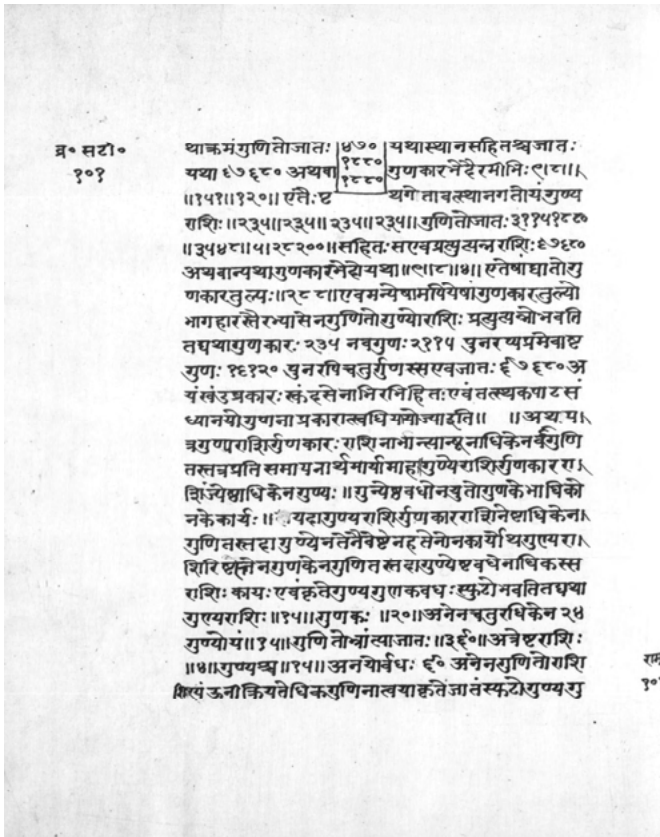 ब्र॰ सटी॰
१०१
थाक्रमंगुणितोजातः ४७० यथास्थानसहितश्चजातः
१८८०
यथा ६७६८० अथवा गुणकारभेदैरमीभिः ९।८।।
१८८०
॥१५१॥१२०॥ एतैः पृ थगेतावत्स्थानगतोयंगुण्य
राशिः॥२३५॥२३५॥२३५॥२३५॥गुणितोजातः
॥सहितः सएवप्रत्युत्पन्नराशिः ६७६८०
अथवान्यथागुणकारभेदोयथा॥९।८।४॥एतेषांघातोगु
णकारतुल्यः॥२८८॥एवमन्येषामपियेषांगुणकारतुल्यो
भागहारस्तैरभ्यासेनगुणितोगुण्योराशिः प्रत्युत्पन्नोभवति
तद्यथागुणकारः २३५ नवगुणः २११५ पुनरप्य
गुणः १६९२० पुनरपिचतुर्गुणस्सएवजातः ६७६८० अ
यंखंडप्रकारः स्कंदसेनाभिरभिहितः एवंतत्स्थकपाटसं
ध्यानयोगुणनाप्रकारात्स्वधिययोज्याइति॥ ॥अथय।
त्रगुण्यराशिर्गुणकारः राशिना
तस्तत्रप्रति समायनार्थमार्यामाह।गुण्योराशिर्गुणकाररा।
शिनेष्टाधिकोनकेनगुण्यः॥गुण्येष्टवधोनयुतोगुणकेभ्यधिको
नकेकार्यः॥ यदागुण्यराशिर्गुणकारराशिनेष्टाधिकेन।
गुणितस्तदागुण्येनतेनैवेष्टेनहतेनोनकार्योथगुण्यरा।
शिरिष्टोनेनगुणकेनगुणितस्तदागुण्येष्टवधेनाधिकस्स
राशिः कार्यः एवंकृतेगुण्यगुणकवधः स्फुटोभवतितद्यथा
गुण्यराशिः॥१५॥गुणकः॥२०॥अनेनचतुरधिकेन २४
गुण्योयं॥१५॥गुणितो जातः॥३६०॥अत्रेष्टराशिः
॥४॥गुण्यश्च॥१५॥अनयोर्वधः ६० अनेनगुणितोराशि
ऊनःक्रियतेधिकगुणिना कृतेजातंस्फुटोगुण्यगु
राम